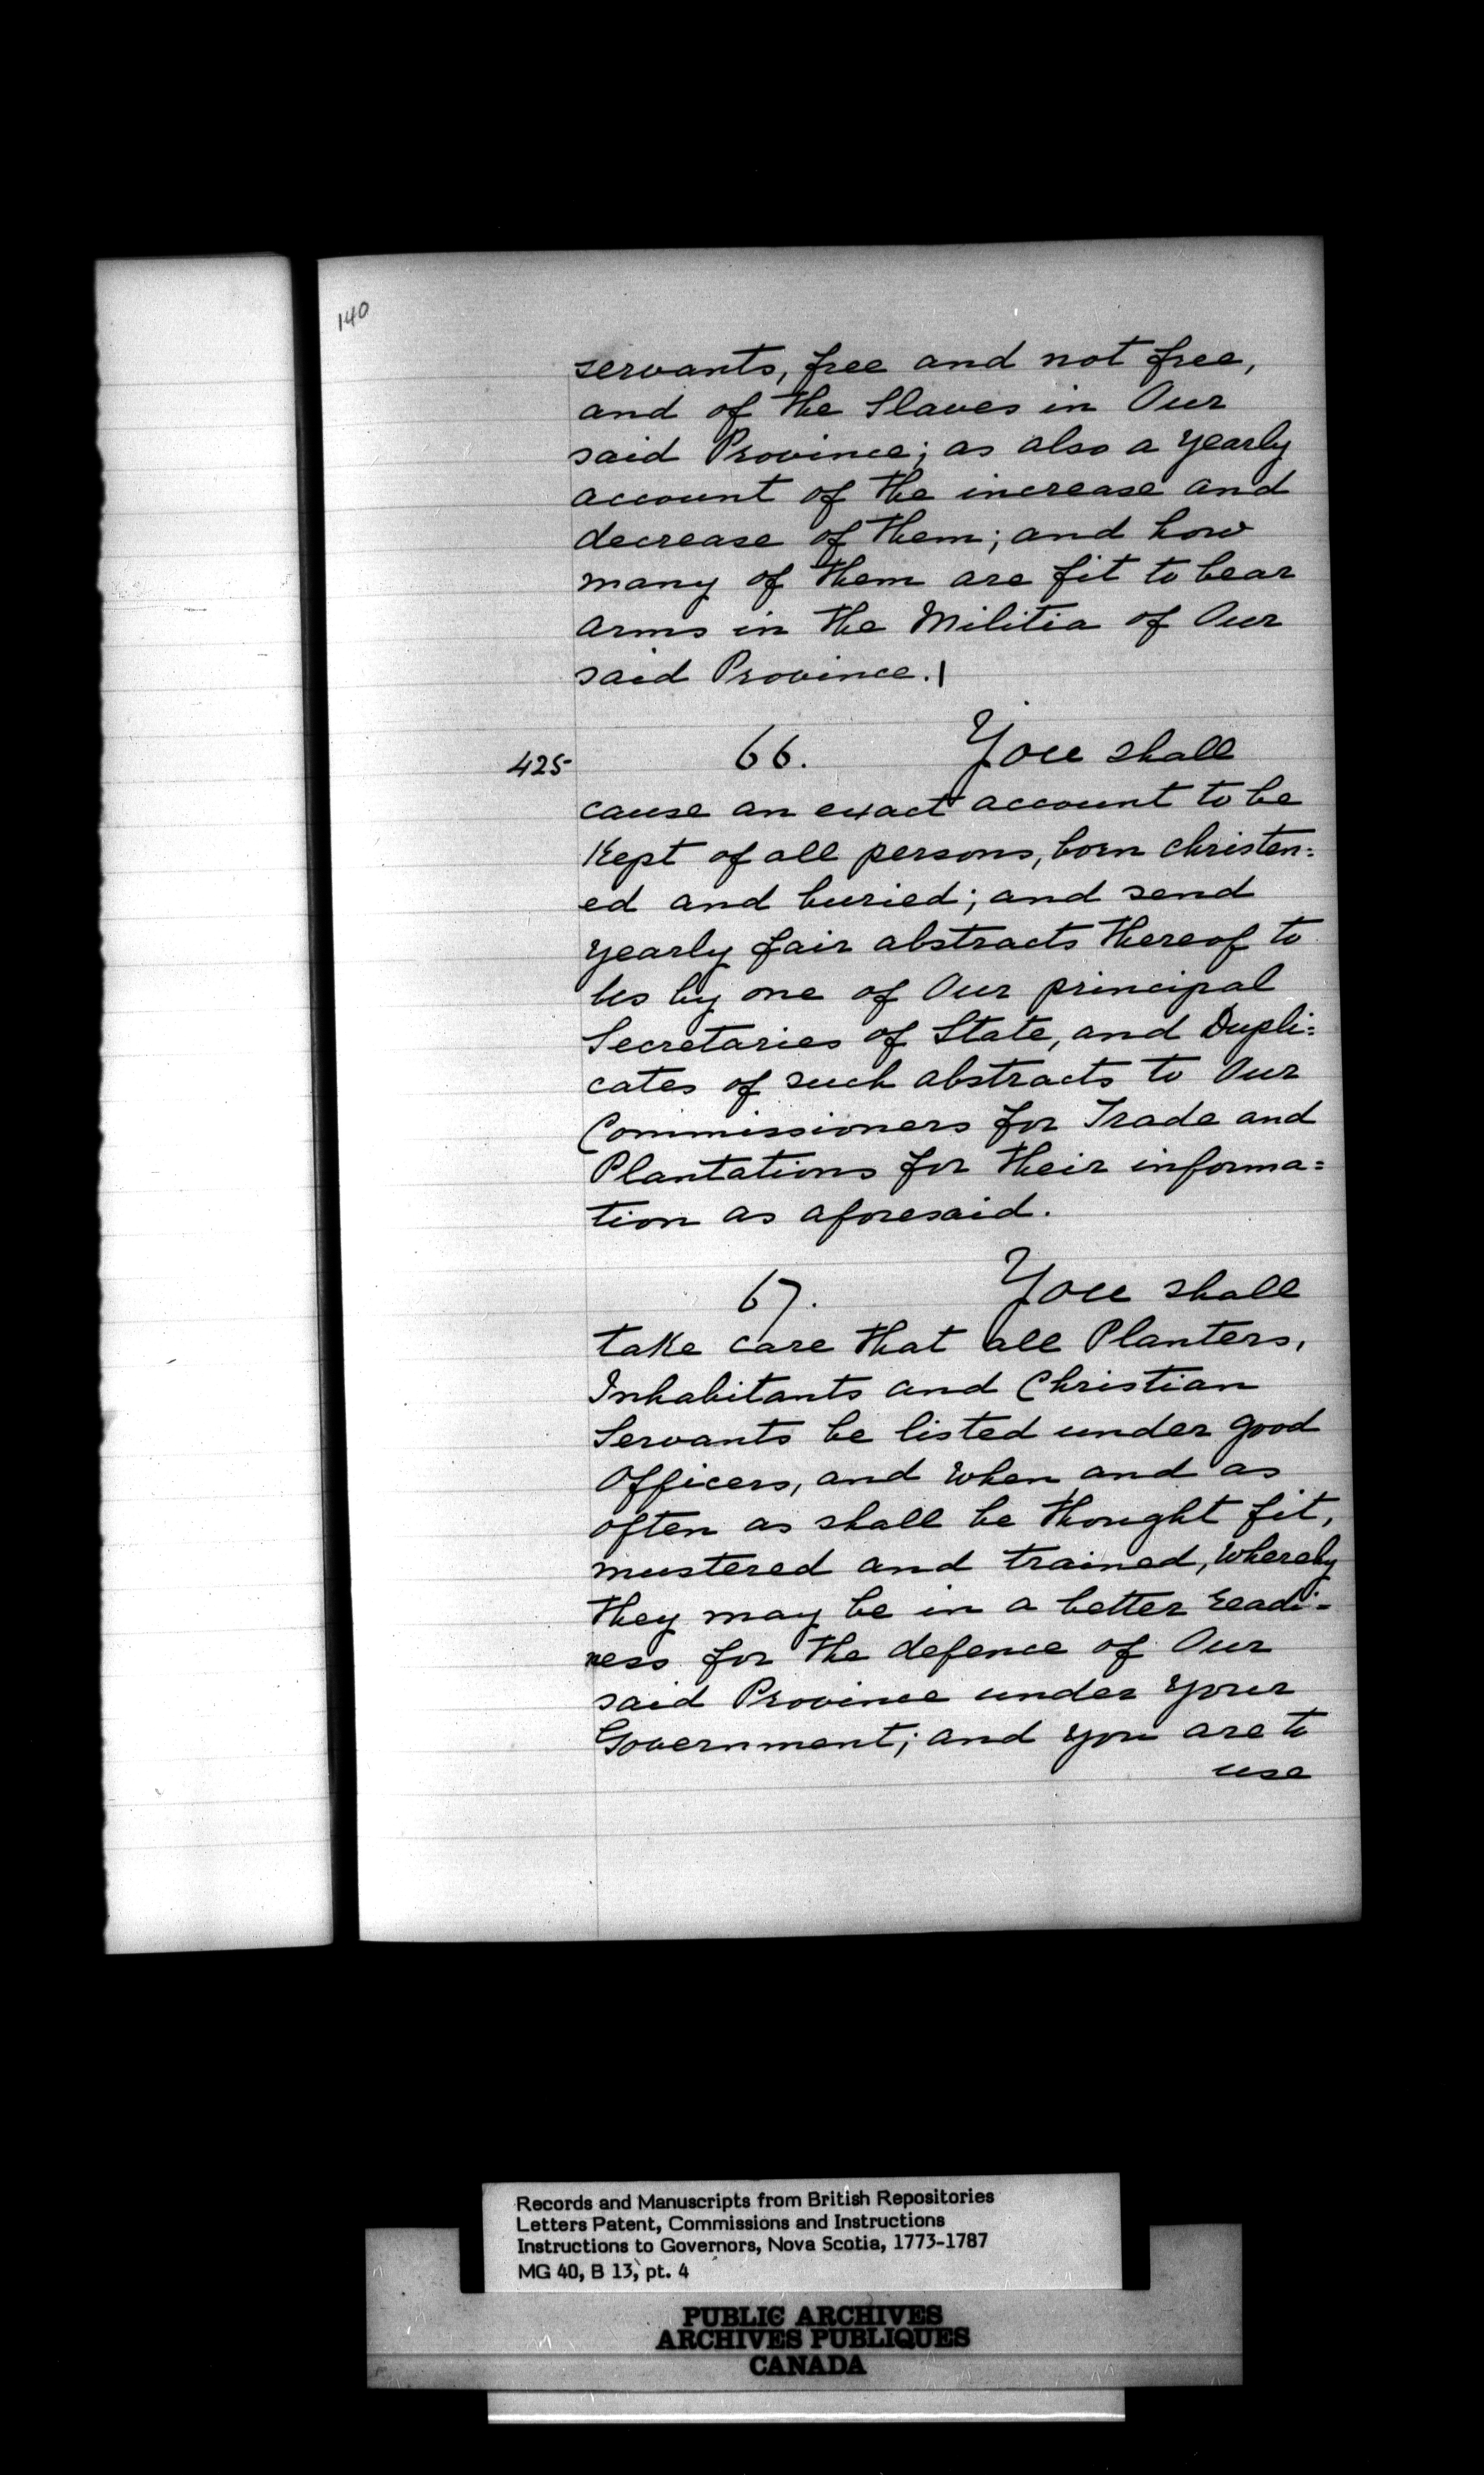 140
servants, free and not free,
and of the Slaves in Our
said Province; as also a yearly
account of the increase and
decrease of them; and how
many of them are fit to bear
arms in the Militia of Our
said Province.|
425 66. You shall
cause an exact account to be
Kept of all persons, born christen=
ed and buried; and send
yearly fair abstracts thereof to
Us by one of Our principal
Secretaries of State, and Dupli=
cates of such abstracts to Our
Commissioners for Trade and
Plantations for their informa=
tion as aforesaid.
67. You shall
take care that all Planters,
Inhabitants and Christian
Servants be listed under good
Officers, and when and as
often as shall be thought fit,
mustered and trained, whereby
they may be in a better readi=
ness for the defence of Our
said Province under your
Government; and you are to
use
Records and Manuscripts from British Repositories
Letters Patent, Commissions and Instructions
Instructions to Governors, Nova Scotia, 1773-1787
MG 40, B 13, pt. 4
PUBLIC ARCHIVES
ARCHIVES PUBLIQUES
CANADA